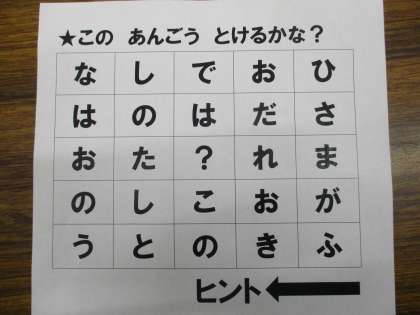 ★この あんごう とけるかな？
な し で お ひ
は の は だ さ
お た ？ れ ま
の し こ お が
う と の き ふ
ヒント